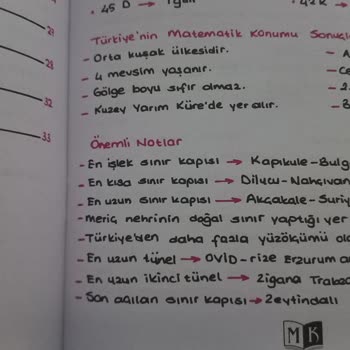 45 D → 
42 K →
21
Türkiye'nin Matematik Konumu
- Orta kuşak ülkesidir.
- 4 mevsim yaşanır.
- Gölge boyu sıfır olmaz.
- Kuzey Yarım Küre'de yer alır.
28
32
35
Önemli Notlar
- En işlek sınır kapısı → Kapıkule-Bulg
- En kısa sınır kapısı → Dilucu-Nahçıvan
- En uzun sınır kapısı → Akçakale-Suriy
- meriç nehrinin doğal sınır yaptığı yer
- Türkiye'den daha fazla yüzölçümü ol
- En uzun tünel → OVİD-rize Erzurum a
- En uzun ikinci tünel → Zigana Trabz
- Son açılan sınır kapısı → Zeytindalı
M K